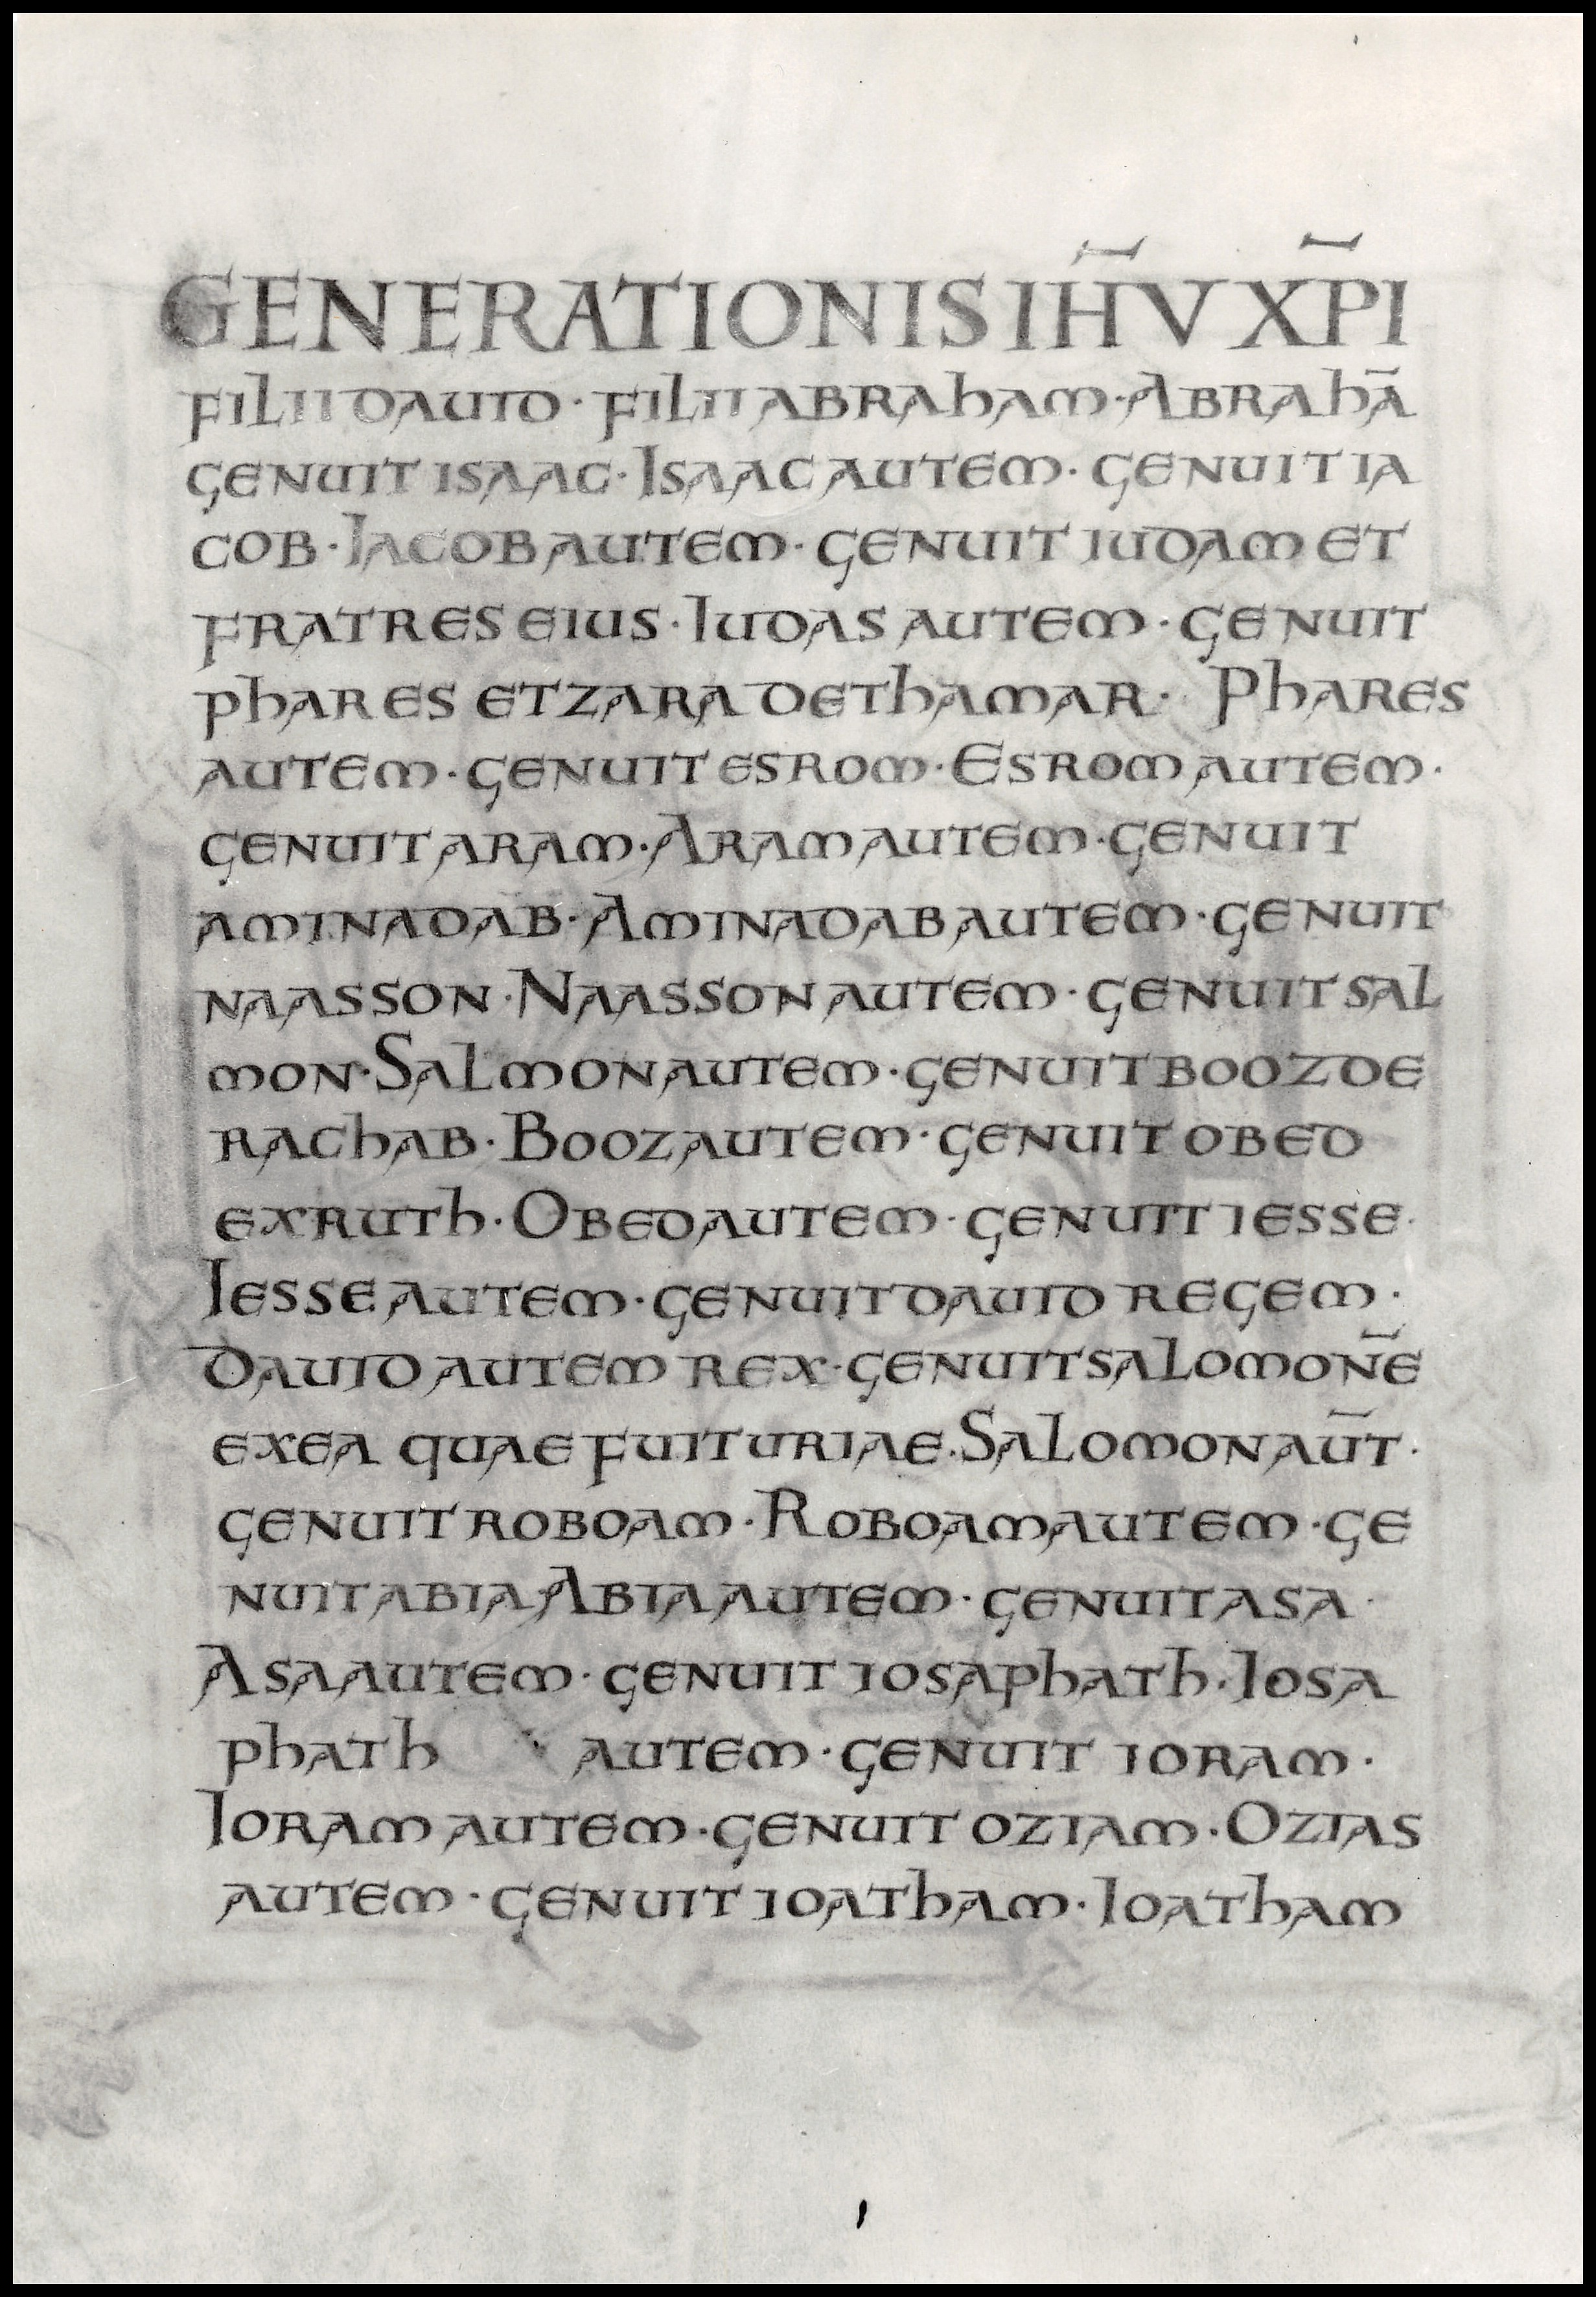 GENERATIONIS IH̄V XP̄I
filii dauid · filii abraham · Abrahā
genuit isaac · Isaac autem · genuit ia
cob · Iacob autem · genuit iudam et
fratres eius · Iudas autem · genuit
phares et zara de thamar · Phares
autem · genuit esrom · Esrom autem ·
genuit aram · Aram autem · genuit
aminadab · Aminadab autem · genuit
naasson · Naasson autem · genuit sal
mon · Salmon autem · genuit booz de
rachab · Booz autem · genuit obed
ex ruth · Obed autem · genuit iesse ·
Iesse autem · genuit dauid regem ·
Dauid autem rex · genuit salomon̄e
ex ea quae fuit uriae · Salomon aūt ·
genuit roboam · Roboam autem · ge
nuit abia · Abia autem · genuit asa ·
Asa autem · genuit iosaphath · Iosa
phath autem · genuit ioram ·
Ioram autem · genuit oziam · Ozias
autem · genuit ioatham · Ioatham